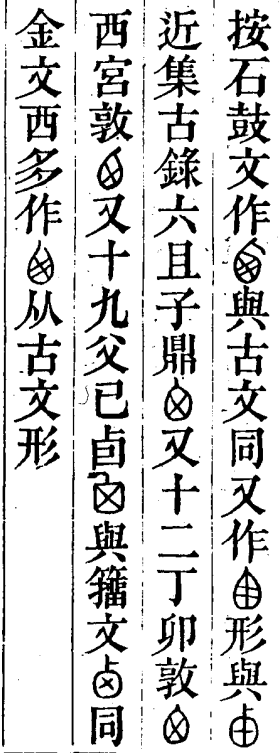 按石鼓文作與古文同又作形與
近集古錄六且子鼎又十二丁卯敦
西宮敦又十九父已卣與籀文同
金文西多作从古文形